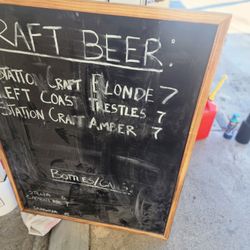 CRAFT BEER:
STATION CRAFT BLONDE 7
LEFT COAST TRESTLES 7
STATION CRAFT AMBER 7
BOTTLES/CANS:
STELLA